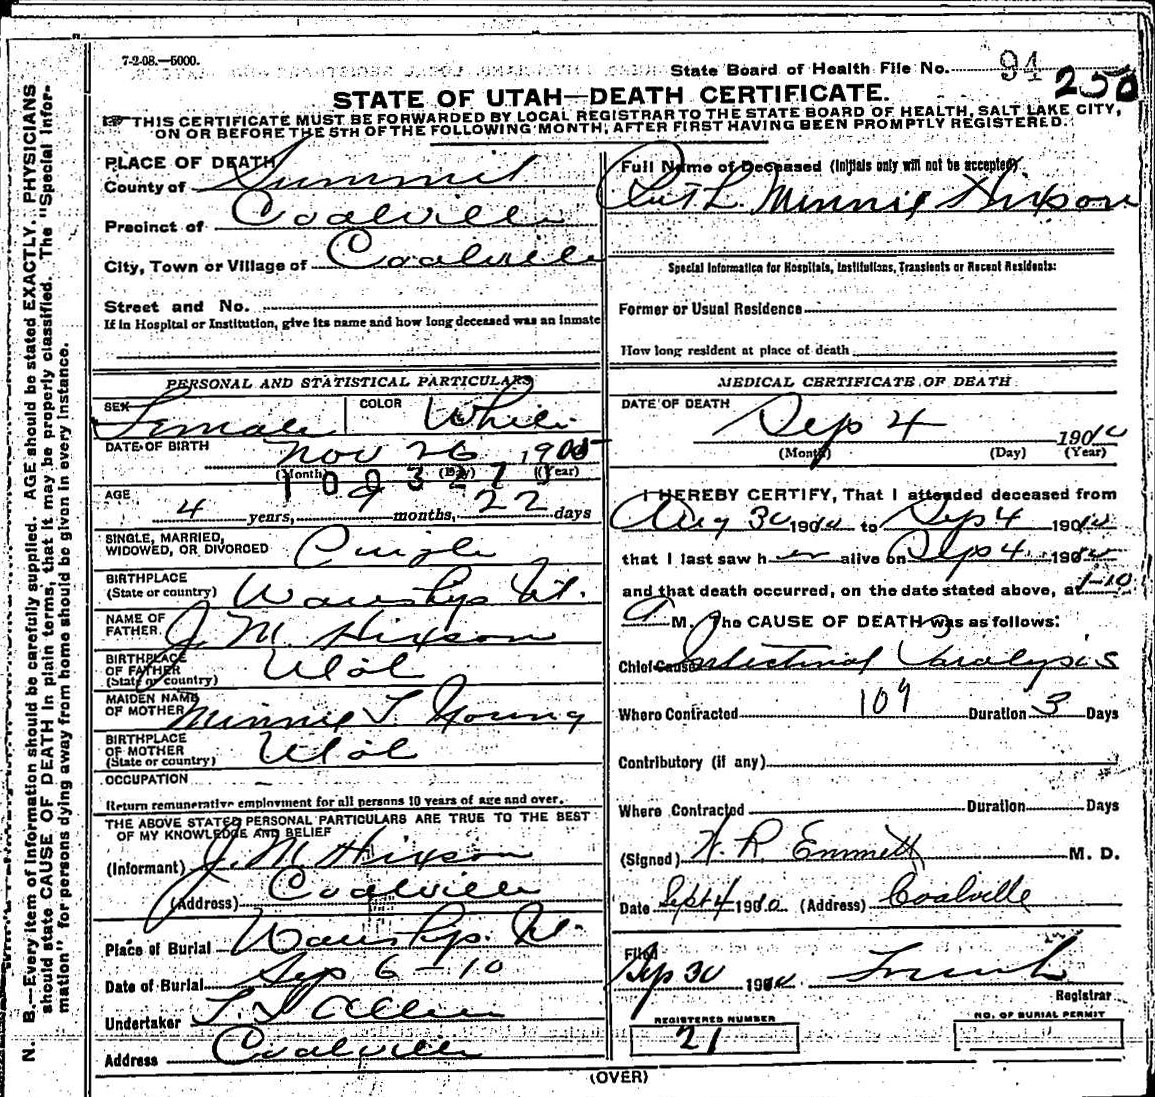 7-2-08.—5000.
State Board of Health File No. 94 250
STATE OF UTAH—DEATH CERTIFICATE.
THIS CERTIFICATE MUST BE FORWARDED BY LOCAL REGISTRAR TO THE STATE BOARD OF HEALTH, SALT LAKE CITY,
ON OR BEFORE THE 5TH OF THE FOLLOWING MONTH, AFTER FIRST HAVING BEEN PROMPTLY REGISTERED.
PLACE OF DEATH
County of Summit
Precinct of Coalville
City, Town or Village of Coalville
Street and No.
If in Hospital or Institution, give its name and how long deceased was an inmate
Full Name of Deceased (Initials only will not be accepted)
Ruth Minnie Hixson
Special Information for Hospitals, Institutions, Transients or Recent Residents:
Former or Usual Residence
How long resident at place of death
PERSONAL AND STATISTICAL PARTICULARS
SEX Female COLOR White
DATE OF BIRTH Nov 26 1905
(Month) (Day) (Year)
AGE
4 years, 9 months, 22 days
SINGLE, MARRIED,
WIDOWED, OR DIVORCED Single
BIRTHPLACE
(State or country) Wanship Ut.
NAME OF
FATHER J. M. Hixson
BIRTHPLACE
OF FATHER
(State or country) Utah
MAIDEN NAME
OF MOTHER Minnie T. Young
BIRTHPLACE
OF MOTHER
(State or country) Utah
OCCUPATION —
Return remunerative employment for all persons 10 years of age and over.
THE ABOVE STATED PERSONAL PARTICULARS ARE TRUE TO THE BEST
OF MY KNOWLEDGE AND BELIEF
(Informant) J. M. Hixson
(Address) Coalville
Place of Burial Wanship. Ut.
Date of Burial Sep 6-10
Undertaker Allen
Address Coalville
MEDICAL CERTIFICATE OF DEATH
DATE OF DEATH
Sep 4 1910
(Month) (Day) (Year)
I HEREBY CERTIFY, That I attended deceased from
Aug 30 1910 to Sep 4 1910
that I last saw her alive on Sep 4 1910
and that death occurred, on the date stated above, at 1-10
A M. The CAUSE OF DEATH was as follows:
Chief Cause Intestinal Paralysis
109
Where Contracted Duration 3 Days
Contributory (if any)
Where Contracted Duration Days
(Signed) W. R. Emmett M. D.
Date Sept 4 1910 (Address) Coalville
Filed
Sep 30 1910
Registrar
REGISTERED NUMBER
21
NO. OF BURIAL PERMIT
(OVER)
N. B.—Every item of information should be carefully supplied. AGE should be stated EXACTLY. PHYSICIANS
should state CAUSE OF DEATH in plain terms, that it may be properly classified. The "Special Infor-
mation" for persons dying away from home should be given in every instance.